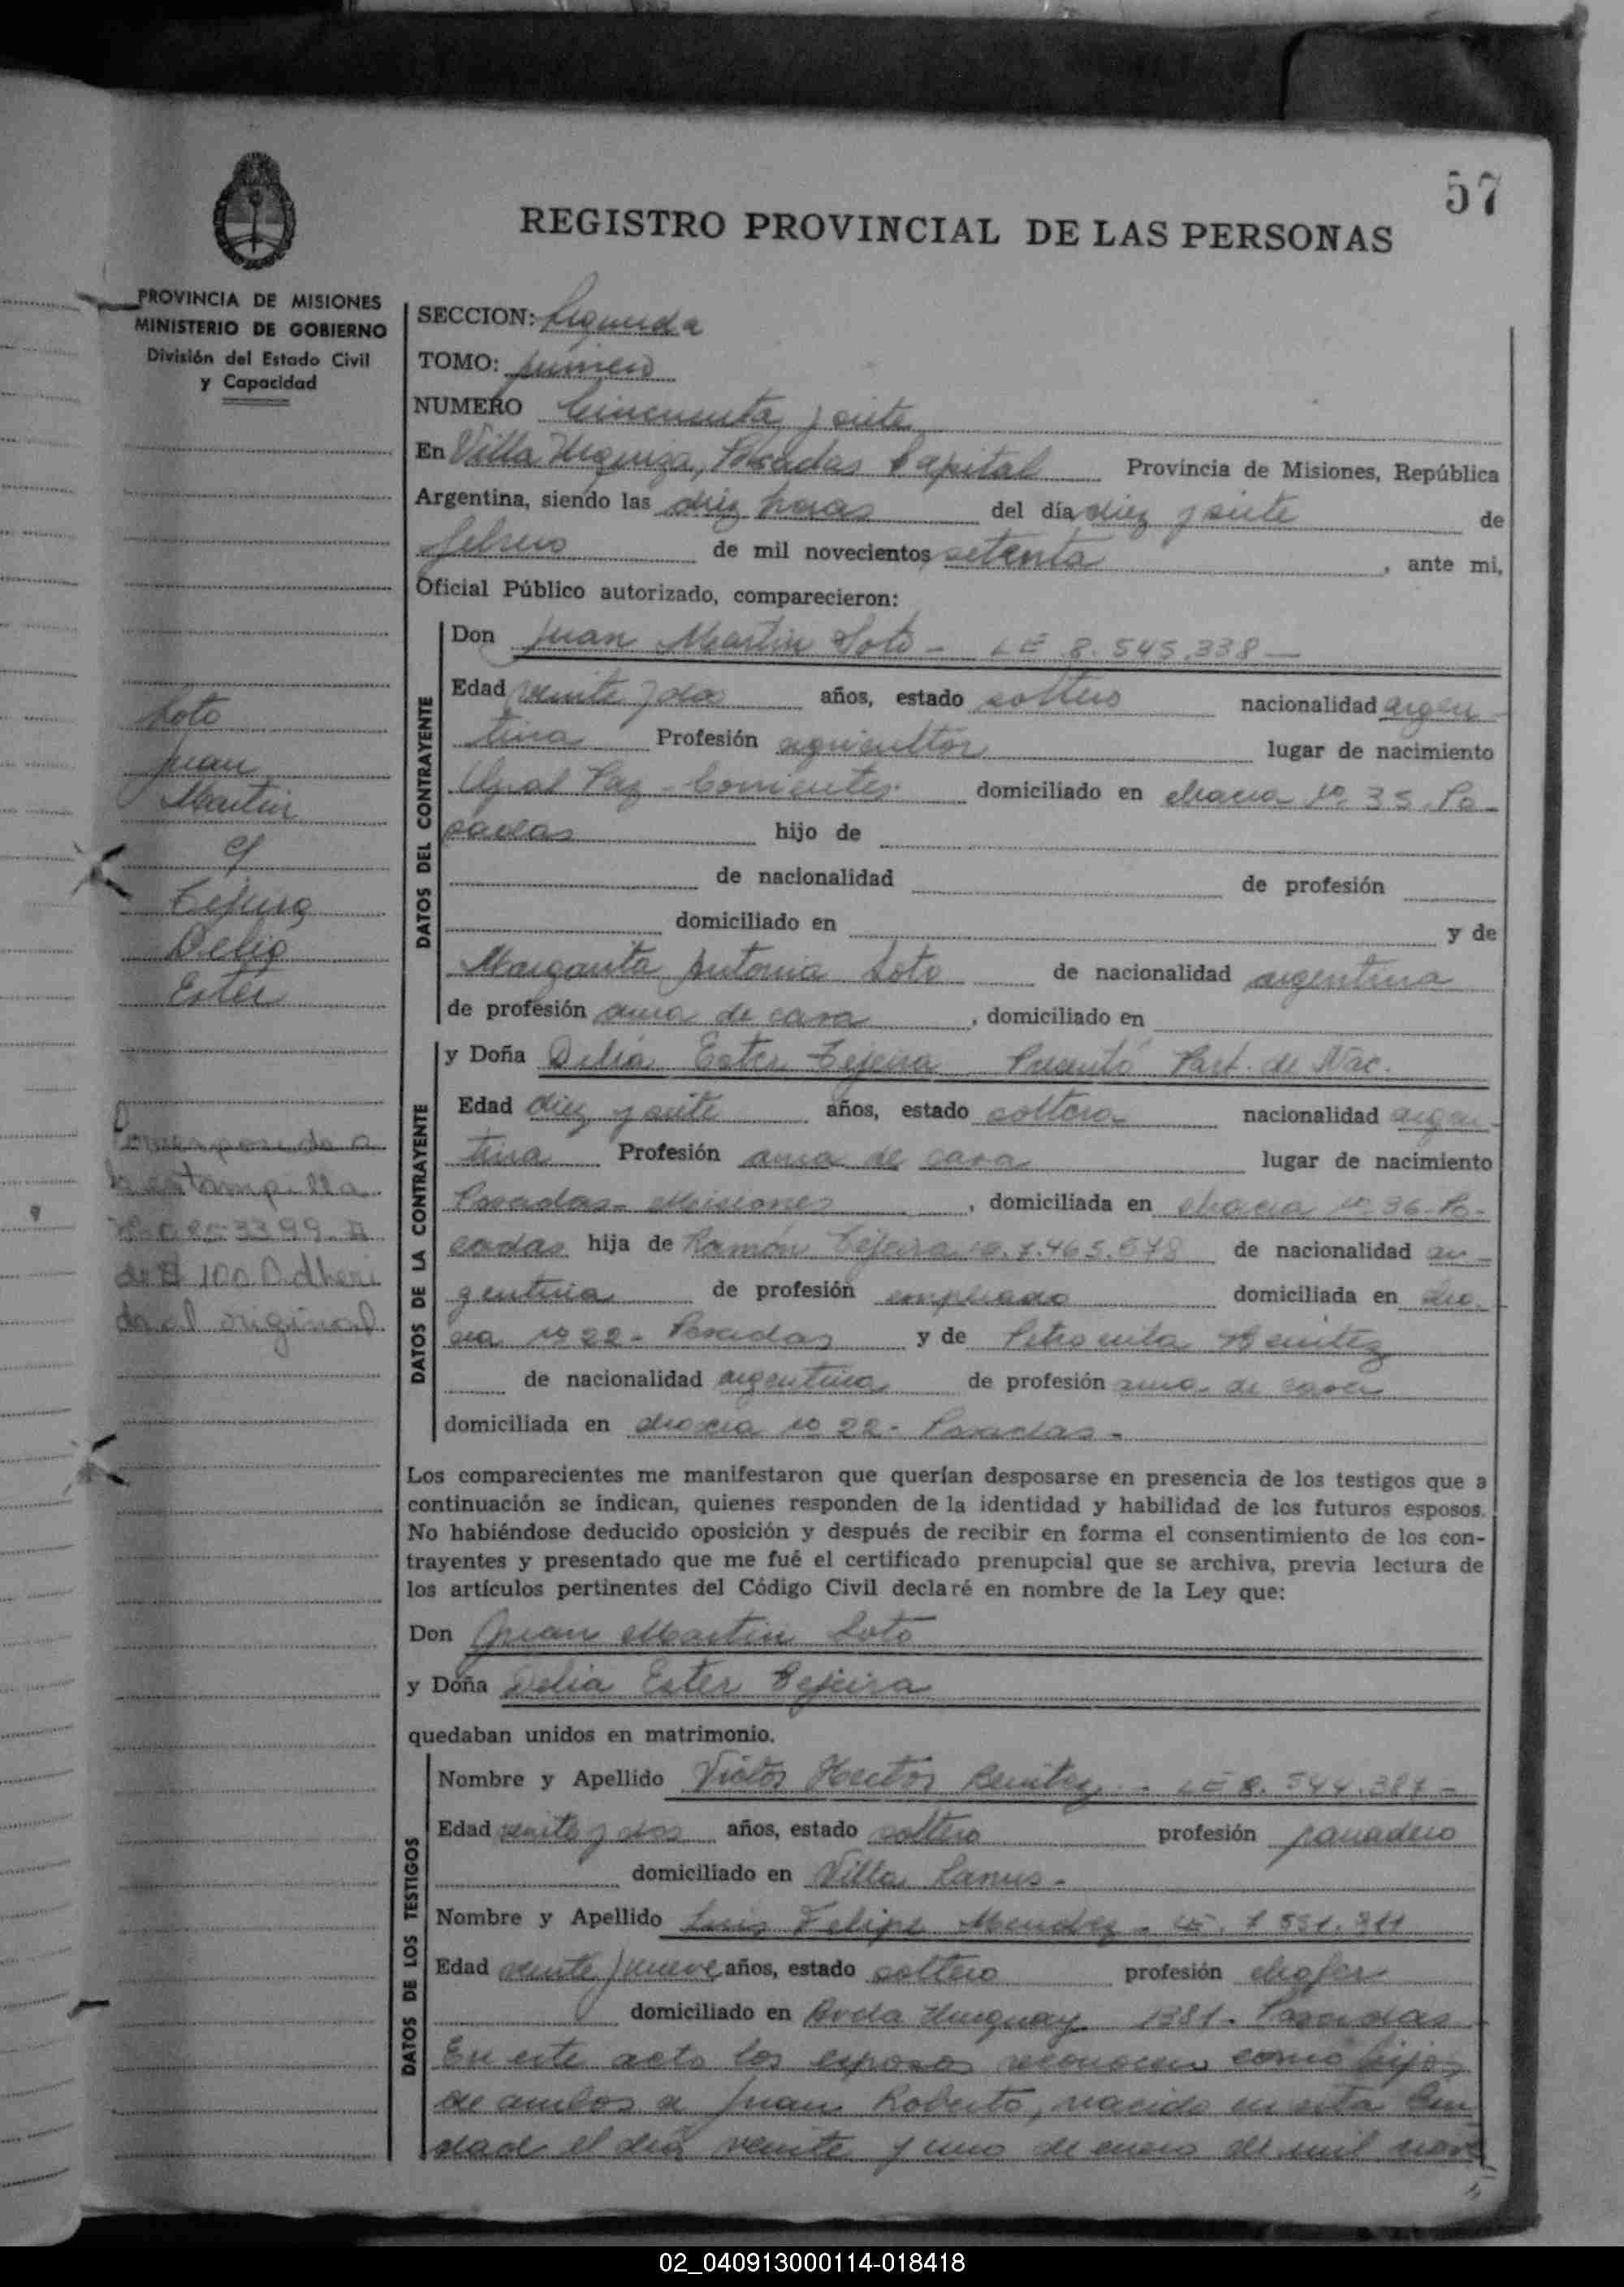 57
REGISTRO PROVINCIAL DE LAS PERSONAS
PROVINCIA DE MISIONES
MINISTERIO DE GOBIERNO
División del Estado Civil
y Capacidad
Soto
Juan
Martin
c/
Tejeira
Delia
Ester
Corresponde a
la estampilla
3399
de $ 100 Adheri
da al original
SECCION: Segunda
TOMO: primero
NUMERO Cincuenta y siete
En Villa Urquiza, Posadas Capital Provincia de Misiones, República
Argentina, siendo las diez horas del día diez y siete de
febrero de mil novecientos setenta, ante mi,
Oficial Público autorizado, comparecieron:
DATOS DEL CONTRAYENTE
Don Juan Martin Soto - LE 8.545.338 -
Edad veinte y dos años, estado soltero nacionalidad argen-
tina Profesión agricultor lugar de nacimiento
Gral Paz - Corrientes domiciliado en chacra Nº 35. Po-
sadas hijo de
de nacionalidad de profesión
domiciliado en y de
Margarita Antonia Soto de nacionalidad argentina
de profesión ama de casa, domiciliado en
DATOS DE LA CONTRAYENTE
y Doña Delia Ester Tejeira Presentó Part. de Nac.
Edad diez y siete años, estado soltera nacionalidad argen-
tina Profesión ama de casa lugar de nacimiento
Posadas - Misiones, domiciliada en chacra Nº 36 - Po-
sadas hija de Ramón Tejeira 7.465.578 de nacionalidad ar-
gentina de profesión empleado domiciliada en cha-
cra Nº 22 - Posadas y de Petronila Benitez
de nacionalidad argentina de profesión ama de casa
domiciliada en chacra Nº 22 - Posadas -
Los comparecientes me manifestaron que querían desposarse en presencia de los testigos que a
continuación se indican, quienes responden de la identidad y habilidad de los futuros esposos.
No habiéndose deducido oposición y después de recibir en forma el consentimiento de los con-
trayentes y presentado que me fué el certificado prenupcial que se archiva, previa lectura de
los artículos pertinentes del Código Civil declaré en nombre de la Ley que:
Don Juan Martin Soto
y Doña Delia Ester Tejeira
quedaban unidos en matrimonio.
DATOS DE LOS TESTIGOS
Nombre y Apellido Victor Hector Benitez - LE 8.544.387 -
Edad veinte y dos años, estado soltero profesión panadero
domiciliado en Villa Lanus -
Nombre y Apellido Luis Felipe Mendez - LE. 7.551.311
Edad veinte y nueve años, estado soltero profesión chofer
domiciliado en Avda Uruguay 1381 - Posadas
En este acto los esposos reconocen como hijo
de ambos a Juan Roberto, nacido en esta Ciu
dad el día veinte y uno de enero de mil nove
02_040913000114-018418